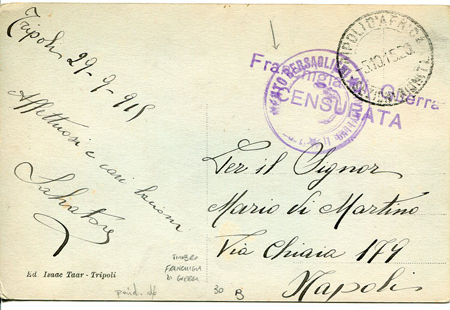 Tripoli 29-9-915
Affettuosi e cari bacioni
Salvatore
Franchigia Guerra
CENSURATA
TRIPOLI D'AFRICA
Per il Signor
Mario di Martino
Via Chiaia 179
Napoli
Ed. Isaac Taar - Tripoli
TIMBRO
FRANCHIGIA
DI GUERRA
30 B